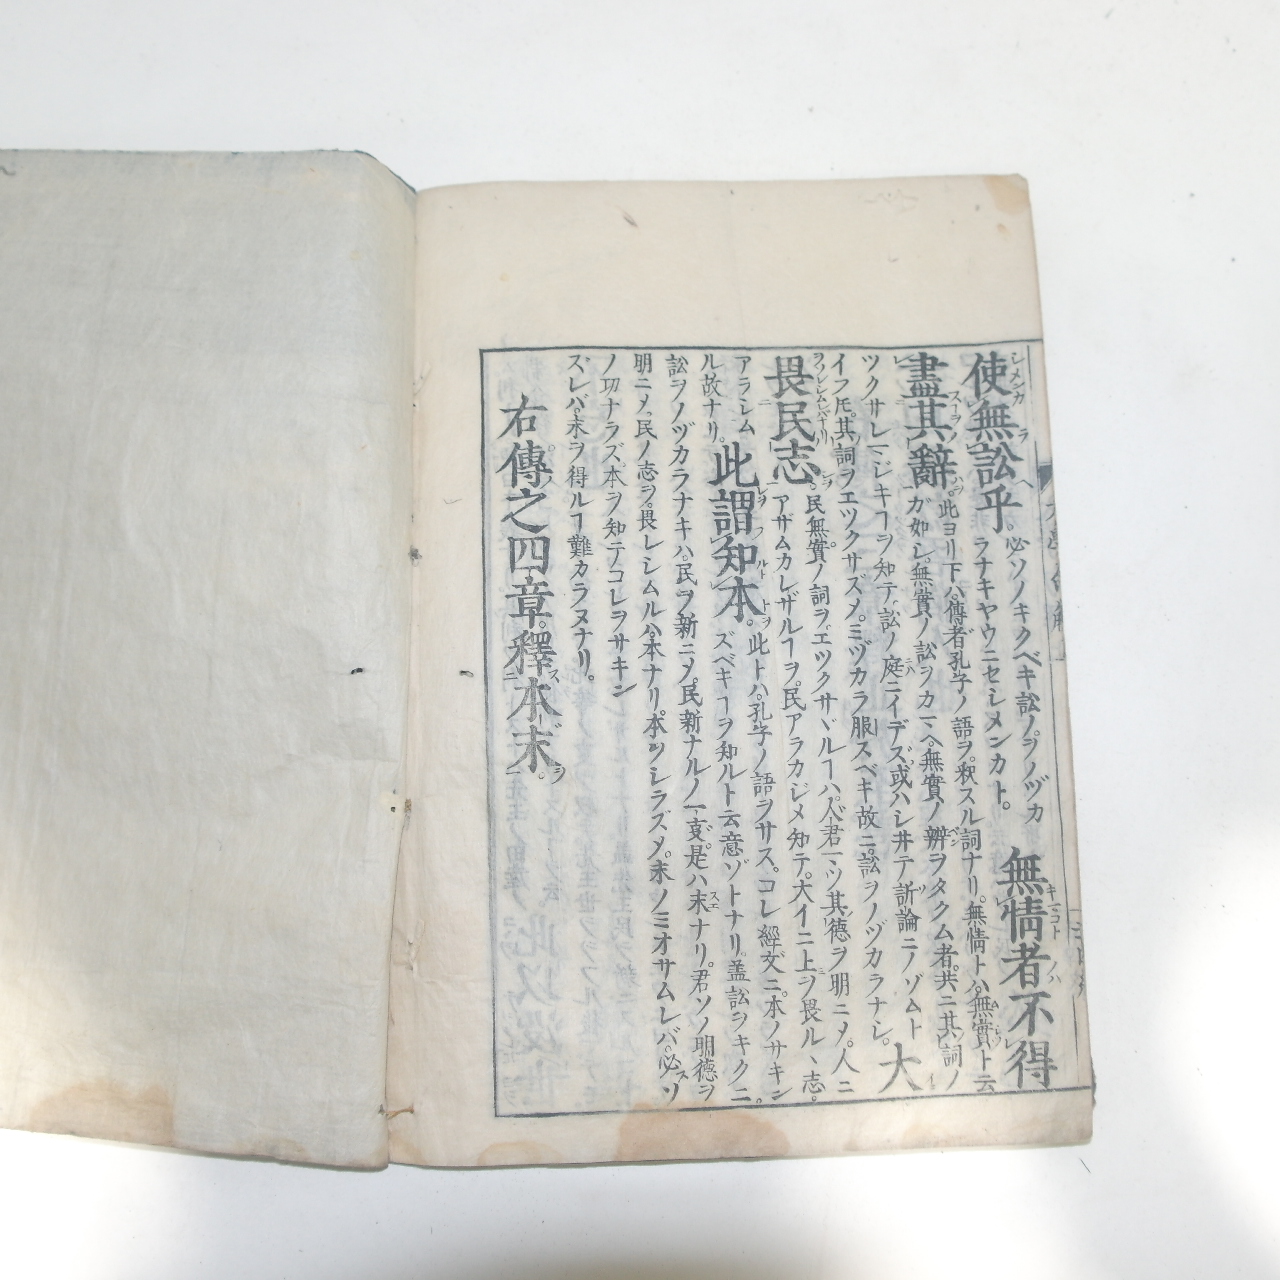 使無訟乎。必ソノキクベキ訟ノ、ヲノヅカ
ラナキヤウニセシメンカト。無情者不得
盡其辭。此ヨリ下ハ、傳者孔子ノ語ヲ。釈スル詞ナリ。無情トハ、無實ト云
ガ如シ。無實ノ訟ヲカマヘ。無實ノ辨ヲタクム者。共ニ其詞ノ
ツクサレマジキヿヲ知テ、訟ノ庭ニイデズ。或ハシ井テ訢論ニノゾムト
イフ𪜈。其詞ヲエツクサズメ。ミヅカラ服スベキ故ニ。訟ヲノヅカラナシ。大
畏民志。民無實ノ詞ヲ。エツクサヾルヿハ。人君マヅ其德ヲ明ニメ。人ニ
アザムカレザルヿヲ。民アラカジメ知テ。大イニ上ヲ畏ルヽ志。
アラシム
ル故ナリ。此謂知本。此トハ。孔子ノ語ヲサス。コレ經文ニ。本ノサキン
ズベキヿヲ知ルト云意ゾトナリ。蓋訟ヲキクニ。
訟ヲノヅカラナキハ。民ヲ新ニメ。民新ナルノ一亊。是ハ末ナリ。君ソノ明德ヲ
明ニメ。民ノ志ヲ。畏レシムルハ。本ナリ。本ヲシラズメ。末ノミオサムレバ。必ソ
ノ功ナラズ。本ヲ知テコレヲサキン
ズレバ。末ヲ得ルヿ難カラヌナリ。
右傳之四章。釋本末。